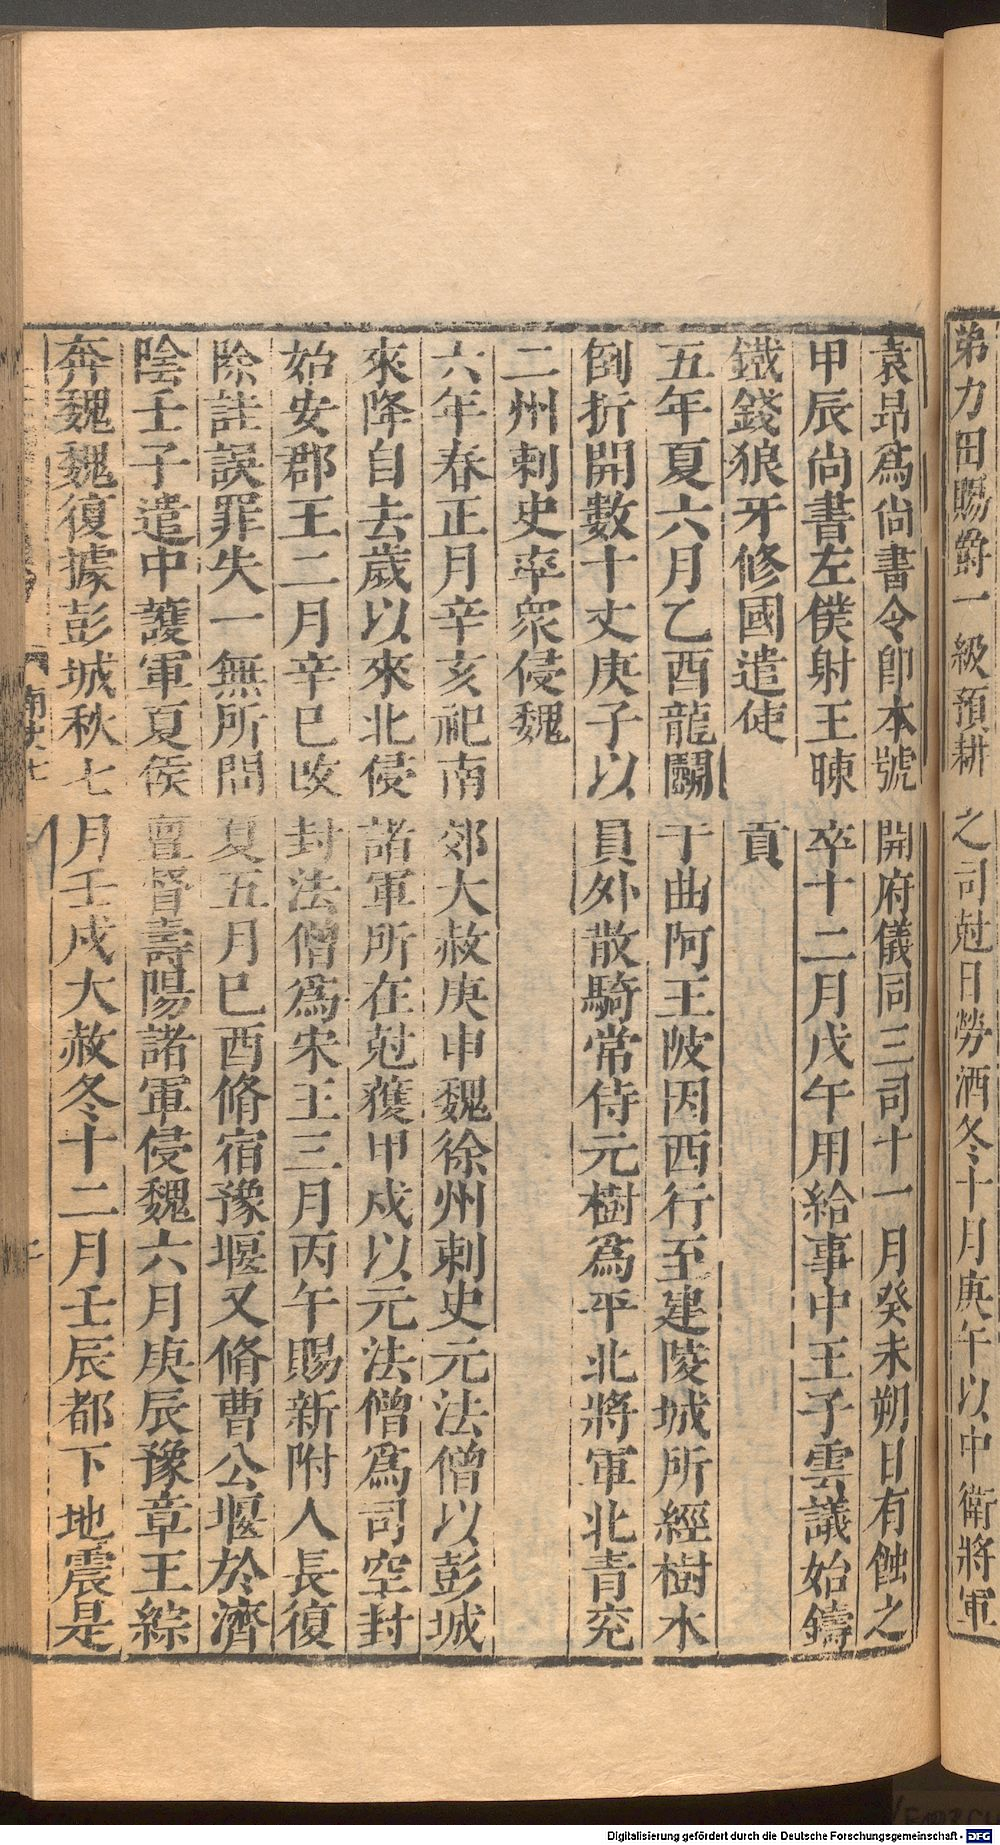 弟力田賜爵一級預耕之司尅日勞酒冬十月庚午以中衛將軍
袁昻爲尚書令卽本號開府儀同三司十一月癸未朔日有蝕之
甲辰尚書左僕射王暕卒十二月戊午用給事中王子雲議始鑄
鐵錢狼牙修國遣使貢
五年夏六月乙酉龍鬭于曲阿王陂因西行至建陵城所經樹木
倒折開數十丈庚子以員外散騎常侍元樹爲平北將軍北青兖
二州刺史率衆侵魏
六年春正月辛亥祀南郊大赦庚申魏徐州刺史元法僧以彭城
來降自去歲以來北侵諸軍所在尅獲甲戍以元法僧爲司空封
始安郡王二月辛巳攺封法僧爲宋王三月丙午賜新附人長復
除詿誤罪失一無所問夏五月巳酉脩宿豫堰又脩曹公堰於濟
陰壬子遣中護軍夏侯亶督壽陽諸軍侵魏六月庚辰豫章王綜
奔魏魏復據彭城秋七月壬戍大赦冬十二月壬辰都下地震是
南史七
Digitalisierung gefördert durch die Deutsche Forschungsgemeinschaft - DFG